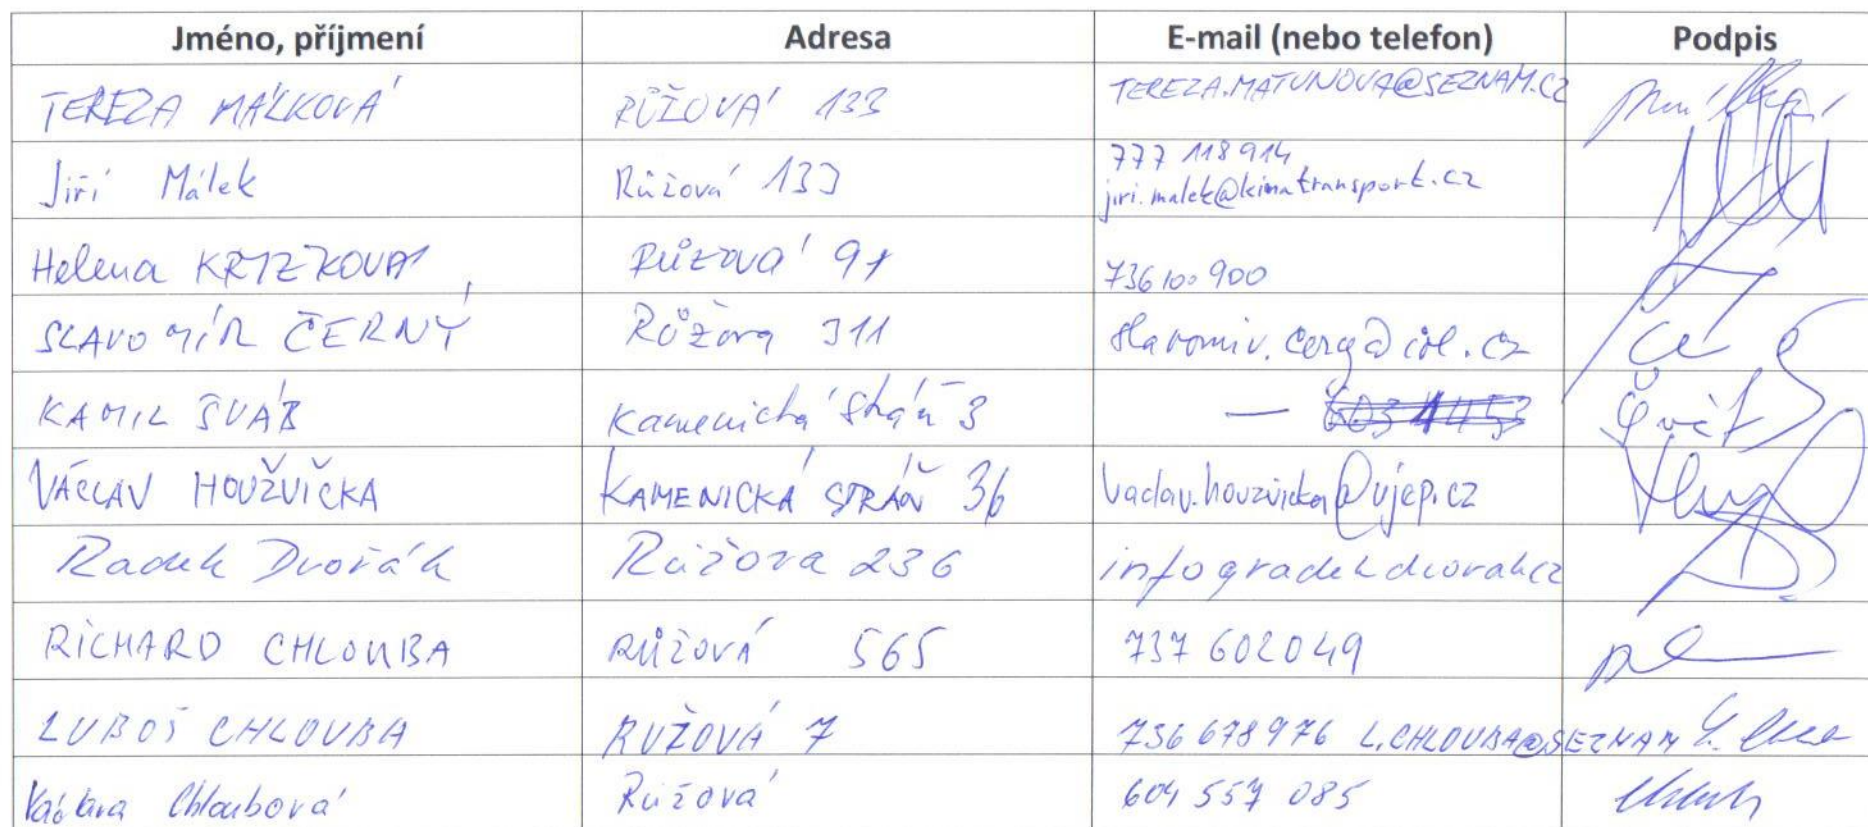 Jméno, příjmení Adresa E-mail (nebo telefon) Podpis
TEREZA MÁLKOVÁ RŮŽOVÁ 133 TEREZA.MATUNOVA@SEZNAM.CZ
Jiří Málek Růžová 133 777 118 914
jiri.malek@kimatransport.cz
Helena KŘIZKOVÁ Růzová 91 736 100 900
SLAVOMÍR ČERNÝ Růžová 311
KAMIL ŠVÁB Kamenická Stráň 3 —
VÁCLAV HOUŽVIČKA KAMENICKÁ STRÁŇ 36 vaclav.houzvicka@ujep.cz
Radek Dvořák Růžova 236
RICHARD CHLOUBA RŮŽOVÁ 565 737 602049
LUBOŠ CHLOUBA RUŽOVÁ 7 736 678 976 L.CHLOUBA@SEZNAM
Chloubová Růžová 604 557 085